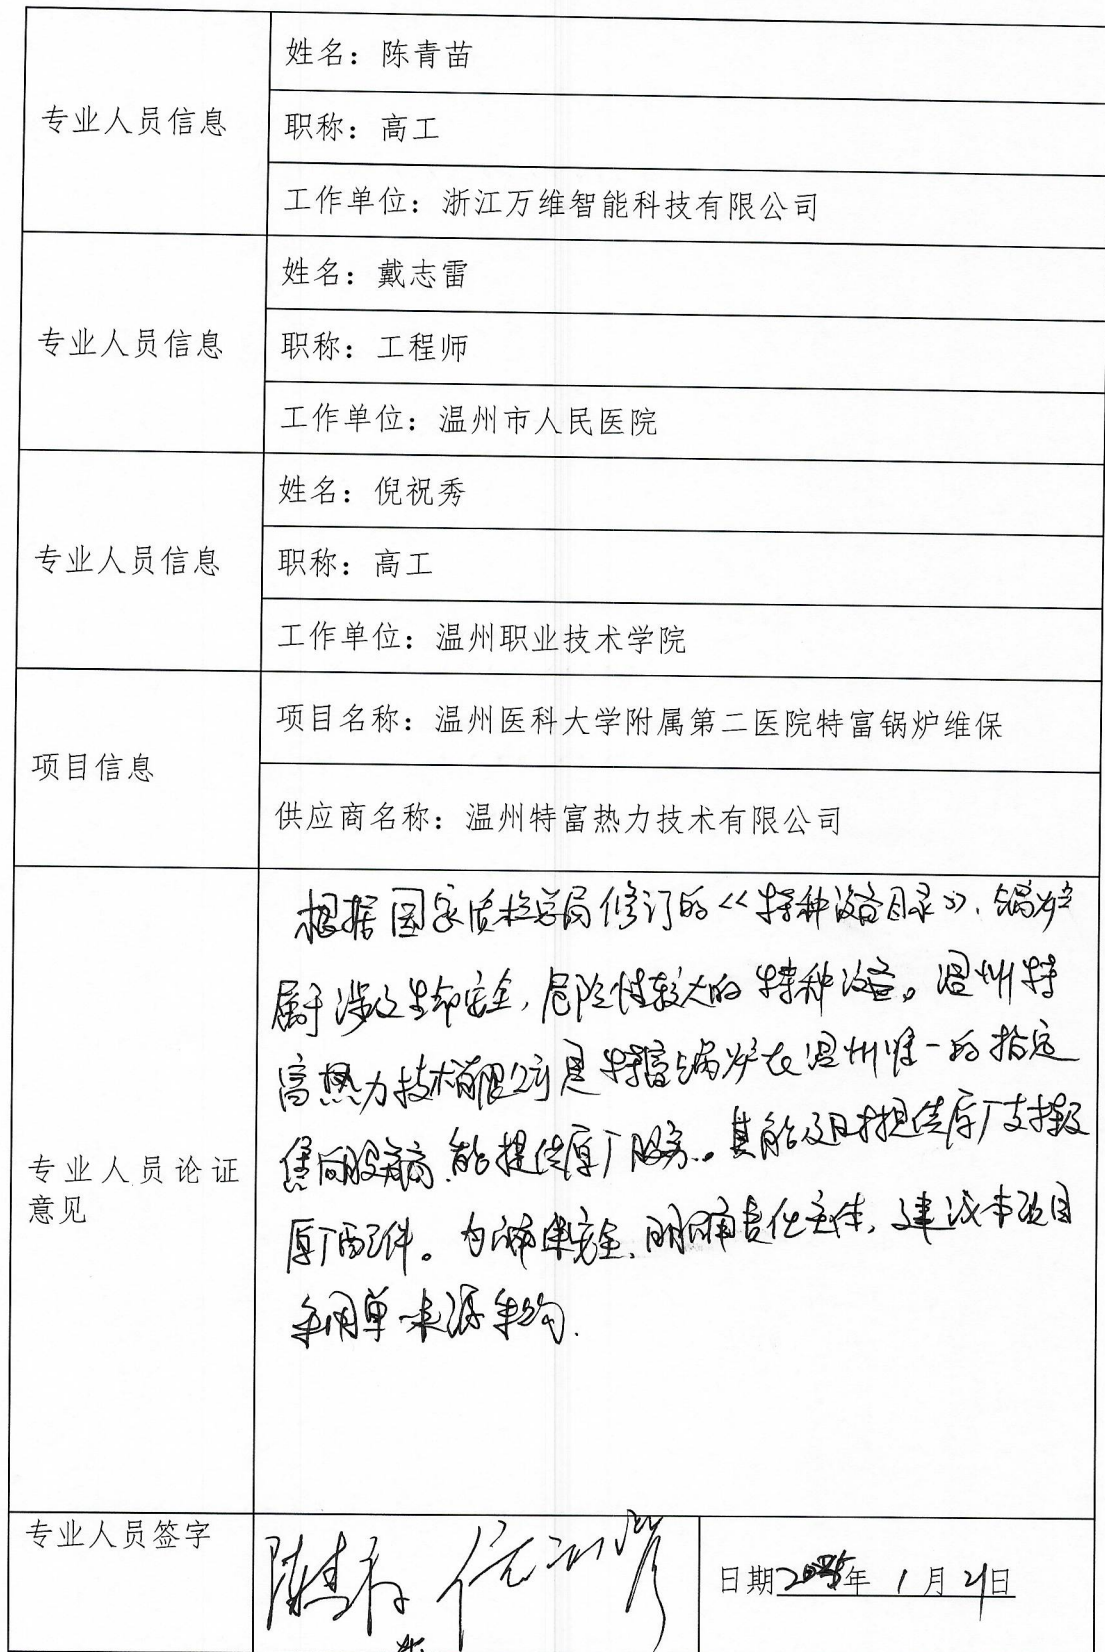 专业人员信息
姓名：陈青苗
职称：高工
工作单位：浙江万维智能科技有限公司
专业人员信息
姓名：戴志雷
职称：工程师
工作单位：温州市人民医院
专业人员信息
姓名：倪祝秀
职称：高工
工作单位：温州职业技术学院
项目信息
项目名称：温州医科大学附属第二医院特富锅炉维保
供应商名称：温州特富热力技术有限公司
专业人员论证
意见
根据国家质检总局修订的《特种设备目录》、锅炉
属于涉及生命安全，危险性较大的特种设备。温州特
富热力技术有限公司是特富锅炉在温州唯一的指定
售后服务商，能提供原厂服务。其能及时提供原厂支持及
原厂配件。为确保安全、明确责任主体，建议本项目
采用单一来源采购.
专业人员签字
日期2025年1月21日